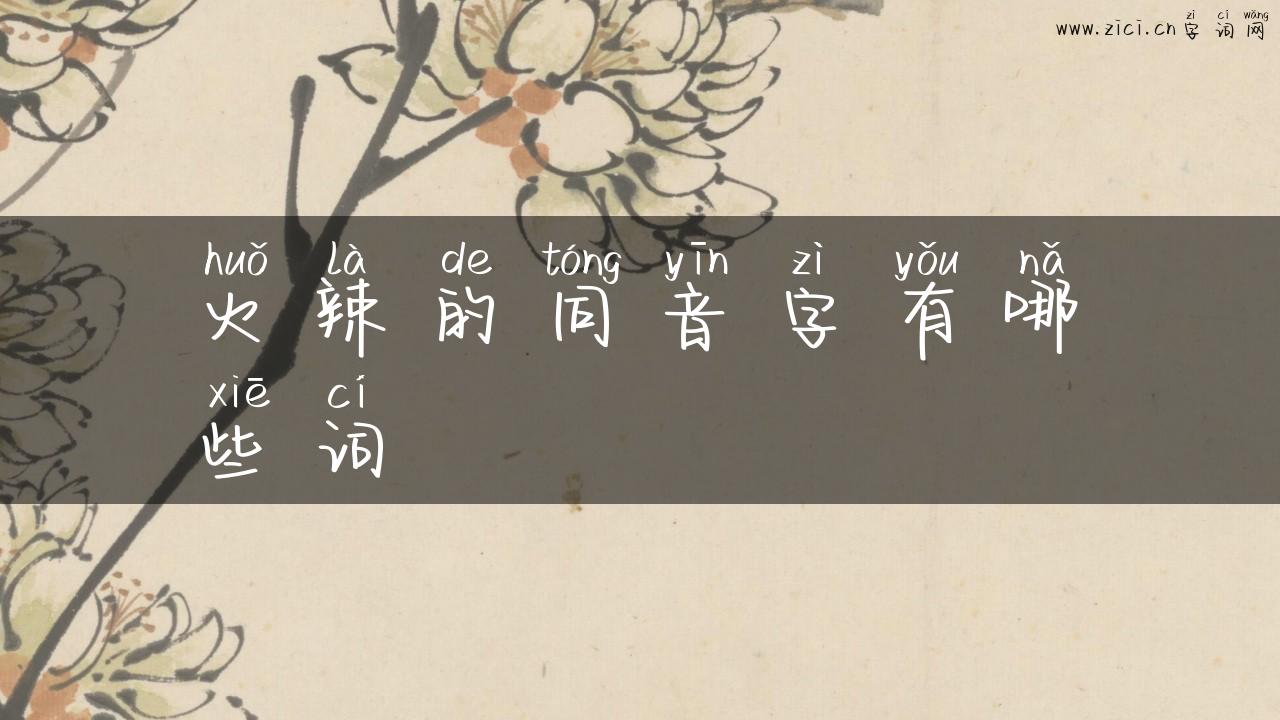 zì cí wǎng
www.zici.cn 字词网
huǒ là de tóng yīn zì yǒu nǎ
火辣的同音字有哪
xiē cí
些词